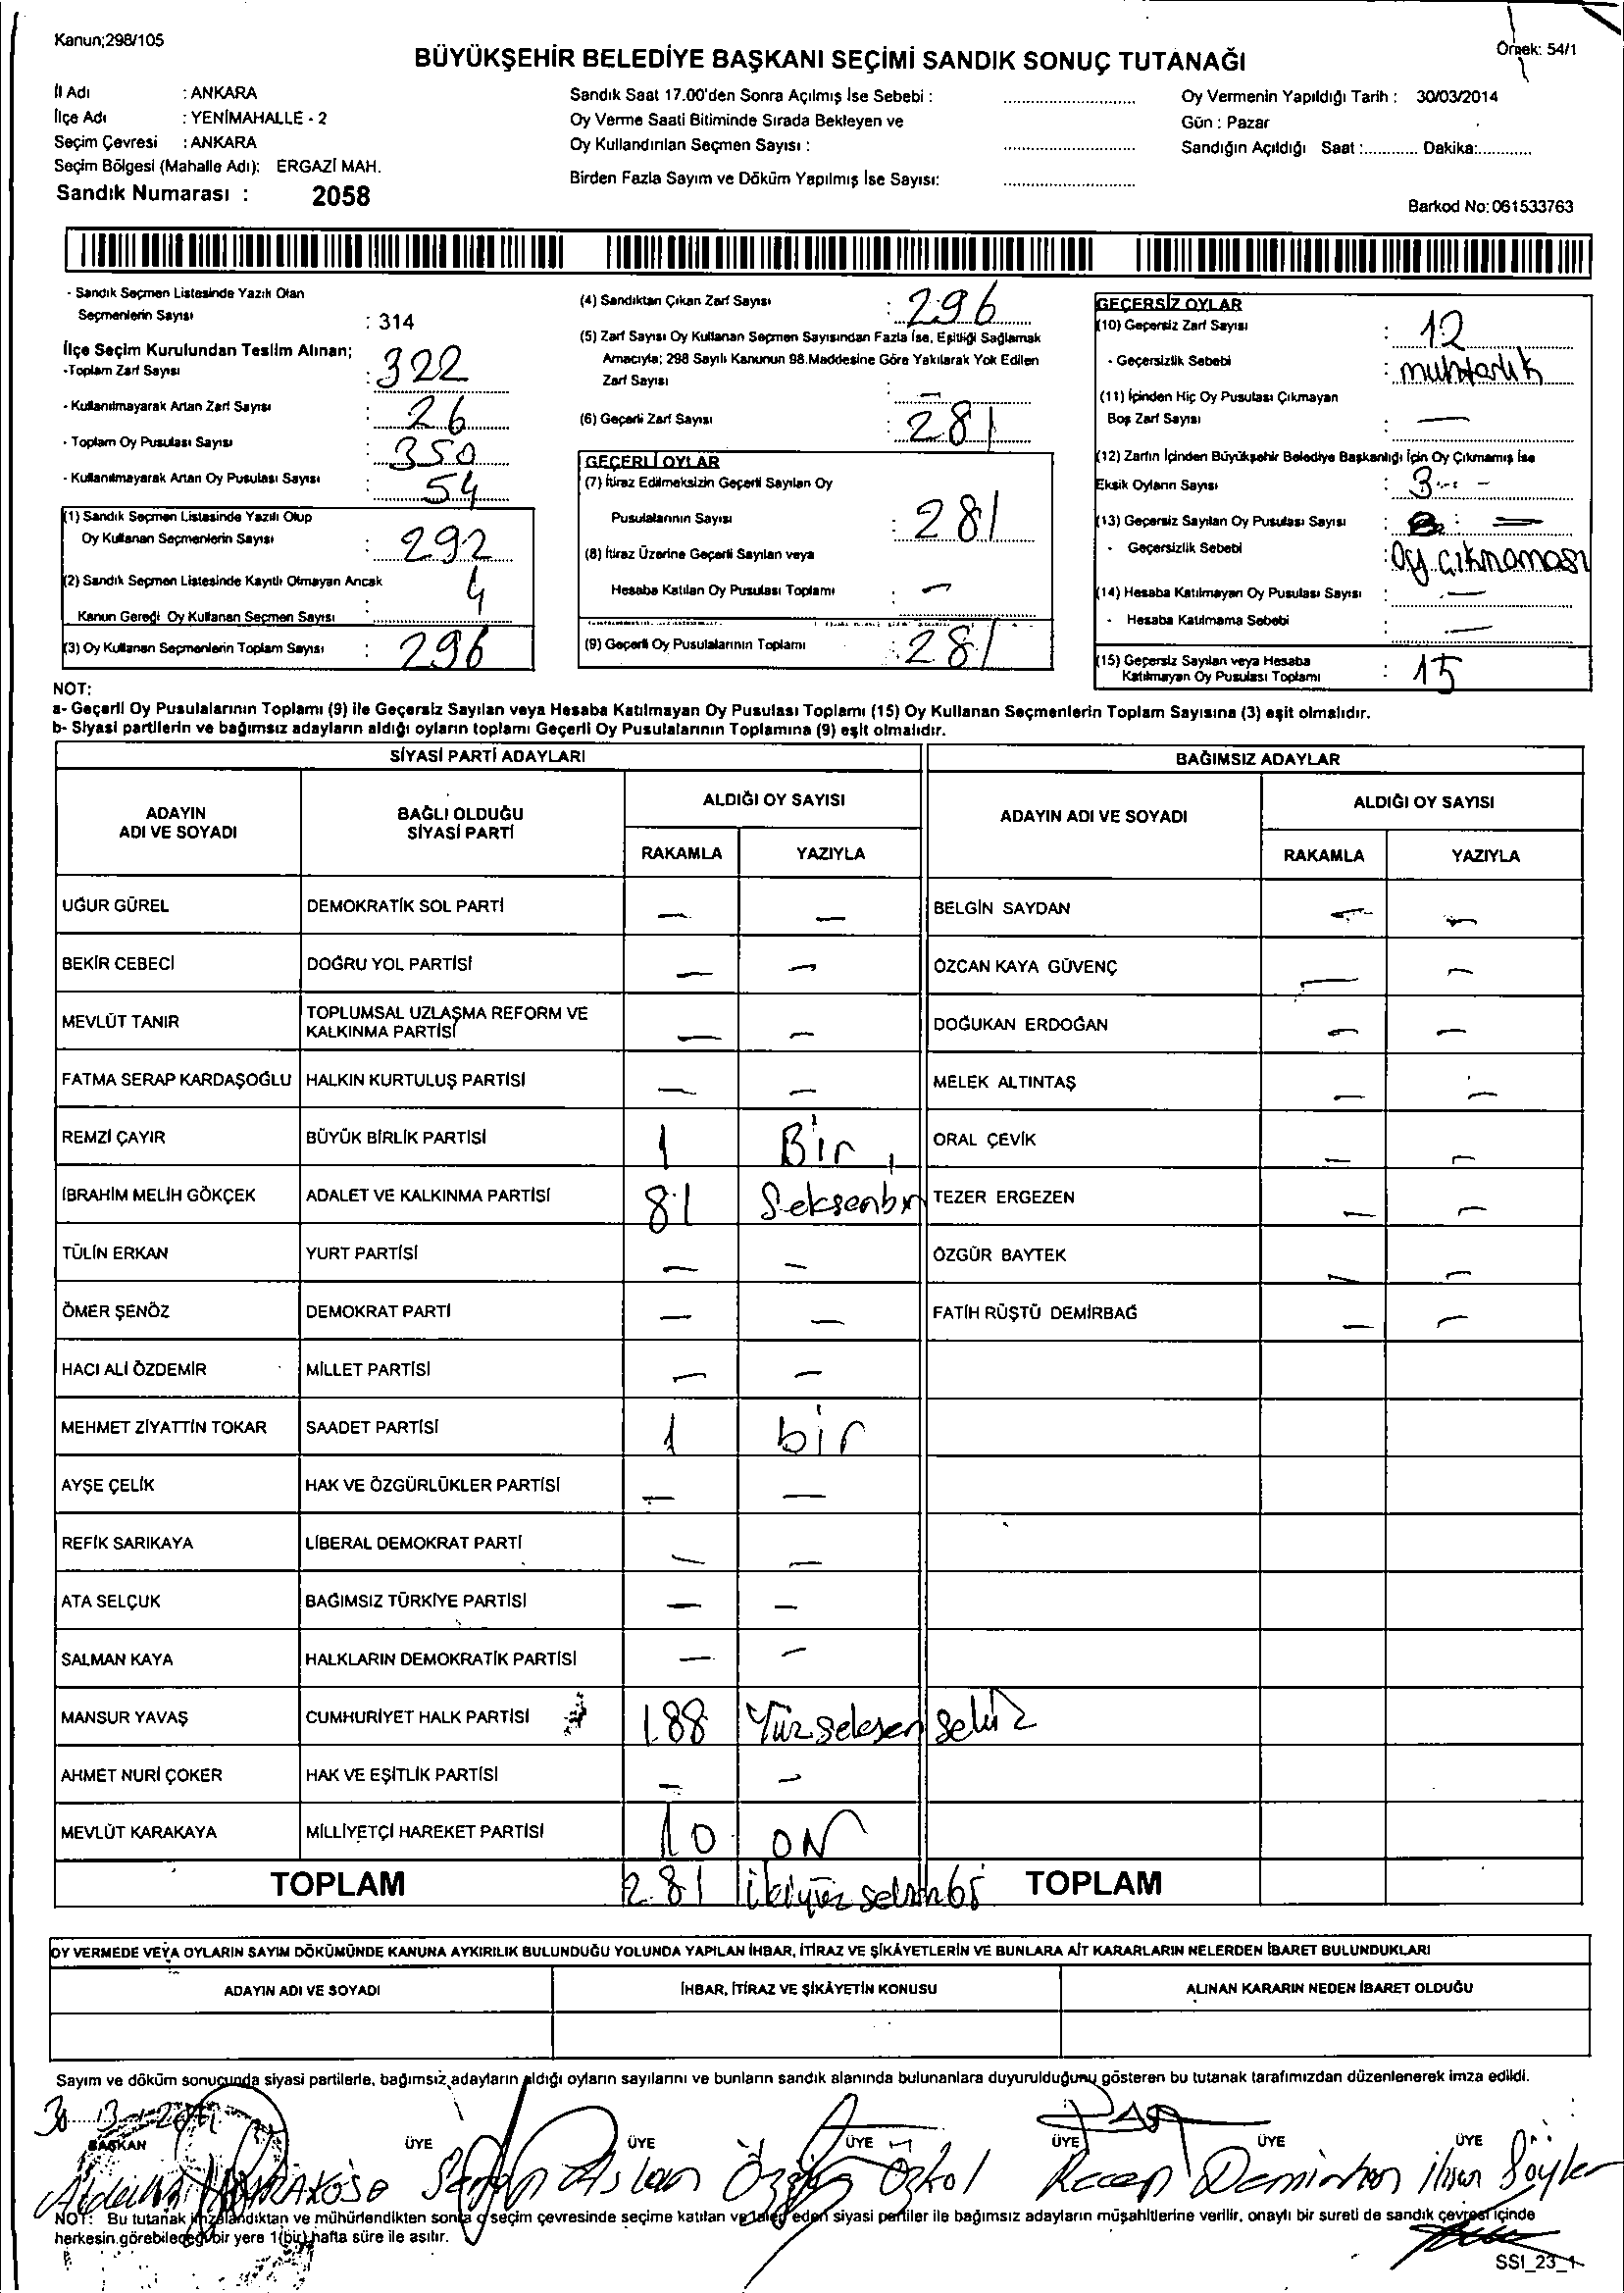 Kanun;298/105
Örnek: 54/1
BÜYÜKŞEHİR BELEDİYE BAŞKANI SEÇİMİ SANDIK SONUÇ TUTANAĞI
İl Adı : ANKARA
İlçe Adı : YENİMAHALLE - 2
Seçim Çevresi : ANKARA
Seçim Bölgesi (Mahalle Adı): ERGAZİ MAH.
Sandık Numarası : 2058
Sandık Saat 17.00'den Sonra Açılmış İse Sebebi :
Oy Verme Saati Bitiminde Sırada Bekleyen ve
Oy Kullandırılan Seçmen Sayısı :
Birden Fazla Sayım ve Döküm Yapılmış İse Sayısı:
Oy Vermenin Yapıldığı Tarih : 30/03/2014
Gün : Pazar
Sandığın Açıldığı Saat :............ Dakika:............
Barkod No:061533763
- Sandık Seçmen Listesinde Yazılı Olan
Seçmenlerin Sayısı : 314
İlçe Seçim Kurulundan Teslim Alınan;
-Toplam Zarf Sayısı : 322
- Kullanılmayarak Artan Zarf Sayısı : 26
- Toplam Oy Pusulası Sayısı : 350
- Kullanılmayarak Artan Oy Pusulası Sayısı : 54
(1) Sandık Seçmen Listesinde Yazılı Olup
Oy Kullanan Seçmenlerin Sayısı : 292
(2) Sandık Seçmen Listesinde Kayıtlı Olmayan Ancak
Kanun Gereği Oy Kullanan Seçmen Sayısı : 4
(3) Oy Kullanan Seçmenlerin Toplam Sayısı : 296
(4) Sandıktan Çıkan Zarf Sayısı : 296
(5) Zarf Sayısı Oy Kullanan Seçmen Sayısından Fazla İse, Eşitliği Sağlamak
Amacıyla; 298 Sayılı Kanunun 98.Maddesine Göre Yakılarak Yok Edilen
Zarf Sayısı : -
(6) Geçerli Zarf Sayısı : 281
GEÇERLİ OYLAR
(7) İtiraz Edilmeksizin Geçerli Sayılan Oy
Pusulalarının Sayısı : 281
(8) İtiraz Üzerine Geçerli Sayılan veya
Hesaba Katılan Oy Pusulası Toplamı : -
(9) Geçerli Oy Pusulalarının Toplamı : 281
GEÇERSİZ OYLAR
(10) Geçersiz Zarf Sayısı : 12
- Geçersizlik Sebebi : muhtarlık
(11) İçinden Hiç Oy Pusulası Çıkmayan
Boş Zarf Sayısı : -
(12) Zarfın İçinden Büyükşehir Belediye Başkanlığı İçin Oy Çıkmamış İse
Eksik Oyların Sayısı : 3
(13) Geçersiz Sayılan Oy Pusulası Sayısı : =
- Geçersizlik Sebebi : Oy çıkmaması
(14) Hesaba Katılmayan Oy Pusulası Sayısı : -
- Hesaba Katılmama Sebebi : -
(15) Geçersiz Sayılan veya Hesaba
Katılmayan Oy Pusulası Toplamı : 15
NOT:
a- Geçerli Oy Pusulalarının Toplamı (9) ile Geçersiz Sayılan veya Hesaba Katılmayan Oy Pusulası Toplamı (15) Oy Kullanan Seçmenlerin Toplam Sayısına (3) eşit olmalıdır.
b- Siyasi partilerin ve bağımsız adayların aldığı oyların toplamı Geçerli Oy Pusulalarının Toplamına (9) eşit olmalıdır.
SİYASİ PARTİ ADAYLARI
BAĞIMSIZ ADAYLAR
ADAYIN ADI VE SOYADI
BAĞLI OLDUĞU SİYASİ PARTİ
ALDIĞI OY SAYISI
RAKAMLA YAZIYLA
ADAYIN ADI VE SOYADI
ALDIĞI OY SAYISI
RAKAMLA YAZIYLA
UĞUR GÜREL DEMOKRATİK SOL PARTİ - - BELGİN SAYDAN - -
BEKİR CEBECİ DOĞRU YOL PARTİSİ - - ÖZCAN KAYA GÜVENÇ - -
MEVLÜT TANIR TOPLUMSAL UZLAŞMA REFORM VE KALKINMA PARTİSİ - - DOĞUKAN ERDOĞAN - -
FATMA SERAP KARDAŞOĞLU HALKIN KURTULUŞ PARTİSİ - - MELEK ALTINTAŞ - -
REMZİ ÇAYIR BÜYÜK BİRLİK PARTİSİ 1 Bir ORAL ÇEVİK - -
İBRAHİM MELİH GÖKÇEK ADALET VE KALKINMA PARTİSİ 81 Seksenbir TEZER ERGEZEN - -
TÜLİN ERKAN YURT PARTİSİ - - ÖZGÜR BAYTEK - -
ÖMER ŞENÖZ DEMOKRAT PARTİ - - FATİH RÜŞTÜ DEMİRBAĞ - -
HACI ALİ ÖZDEMİR MİLLET PARTİSİ - -
MEHMET ZİYATTİN TOKAR SAADET PARTİSİ 1 bir
AYŞE ÇELİK HAK VE ÖZGÜRLÜKLER PARTİSİ - -
REFİK SARIKAYA LİBERAL DEMOKRAT PARTİ - -
ATA SELÇUK BAĞIMSIZ TÜRKİYE PARTİSİ - -
SALMAN KAYA HALKLARIN DEMOKRATİK PARTİSİ - -
MANSUR YAVAŞ CUMHURİYET HALK PARTİSİ 188 Yüzseksensekiz
AHMET NURİ ÇOKER HAK VE EŞİTLİK PARTİSİ - -
MEVLÜT KARAKAYA MİLLİYETÇİ HAREKET PARTİSİ 10 ON
TOPLAM 281 ikiyüz seksenbir TOPLAM
OY VERMEDE VEYA OYLARIN SAYIM DÖKÜMÜNDE KANUNA AYKIRILIK BULUNDUĞU YOLUNDA YAPILAN İHBAR, İTİRAZ VE ŞİKÂYETLERİN VE BUNLARA AİT KARARLARIN NELERDEN İBARET BULUNDUKLARI
ADAYIN ADI VE SOYADI İHBAR, İTİRAZ VE ŞİKÂYETİN KONUSU ALINAN KARARIN NEDEN İBARET OLDUĞU
Sayım ve döküm sonucunda siyasi partilerle, bağımsız adayların aldığı oyların sayılarını ve bunların sandık alanında bulunanlara duyurulduğunu gösteren bu tutanak tarafımızdan düzenlenerek imza edildi.
BAŞKAN ÜYE ÜYE ÜYE ÜYE ÜYE ÜYE
Aslan Özkol Recep Demirhan
NOT: Bu tutanak imzalandıktan ve mühürlendikten sonra o seçim çevresinde seçime katılan ve talep eden siyasi partiler ile bağımsız adayların müşahitlerine verilir, onaylı bir sureti de sandık çevresi içinde
herkesin görebileceği bir yere 1(bir) hafta süre ile asılır.
SSI_23_1